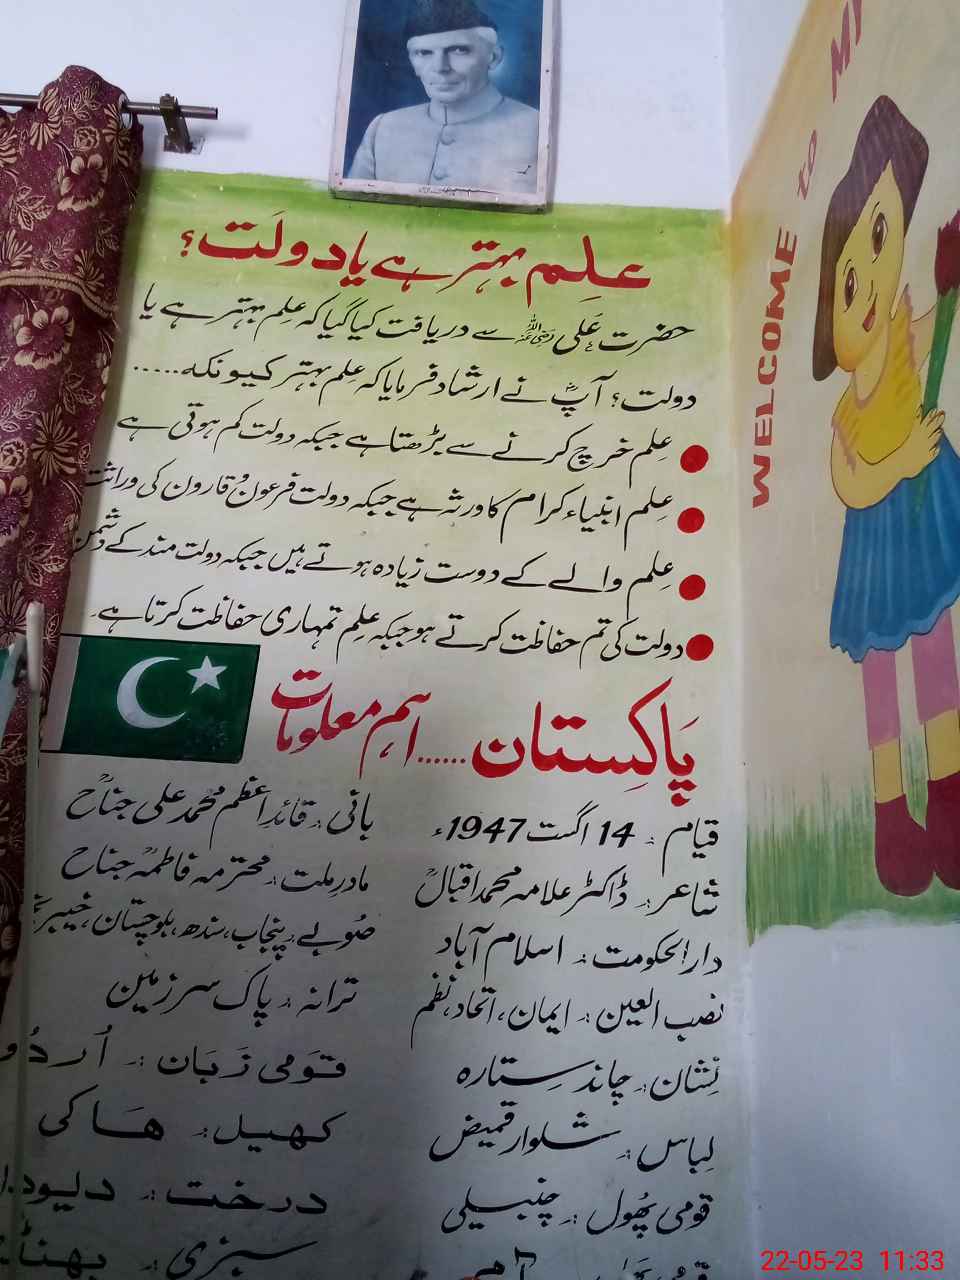 علم بہتر ہے یا دولت؟
حضرت علیؓ سے دریافت کیا گیا کہ علم بہتر ہے یا
دولت؟ آپؓ نے ارشاد فرمایا کہ علم بہتر کیونکہ.....
علم خرچ کرنے سے بڑھتا ہے جبکہ دولت کم ہوتی ہے
علم انبیاء کرام کا ورثہ ہے جبکہ دولت فرعون و قارون کی وراثت
علم والے کے دوست زیادہ ہوتے ہیں جبکہ دولت مند کے دشمن
دولت کی تم حفاظت کرتے ہو جبکہ علم تمہاری حفاظت کرتا ہے۔
پاکستان......اہم معلومات
قیام:۔ 14 اگست 1947ء
بانی:۔ قائداعظم محمد علی جناحؒ
شاعر:۔ ڈاکٹر علامہ محمد اقبالؒ
مادرِ ملت:۔ محترمہ فاطمہ جناحؒ
دارالحکومت:۔ اسلام آباد
صُوبے:۔ پنجاب، سندھ، بلوچستان، خیبر
نصب العین:۔ ایمان، اتحاد، نظم
ترانہ:۔ پاک سرزمین
نِشان:۔ چاند ستارہ
قومی زَبان:۔ اُردُو
لِباس:۔ شلوار قمیض
کھیل:۔ ہاکی
قومی پُھول:۔ چنبیلی
درخت:۔
سبزی:۔
WELCOME to
22-05-23 11:33